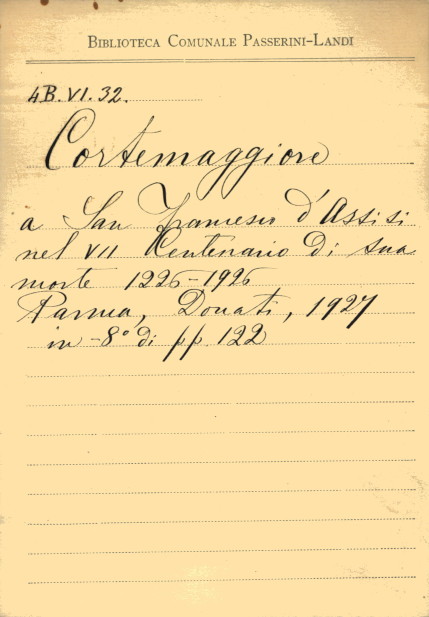 BIBLIOTECA COMUNALE PASSERINI-LANDI
4B.VI.32.
Cortemaggiore
a San Francesco d'Assisi
nel VII Centenario di sua
morte 1226-1926
Parma, Donati, 1927
in-8° di pp. 122